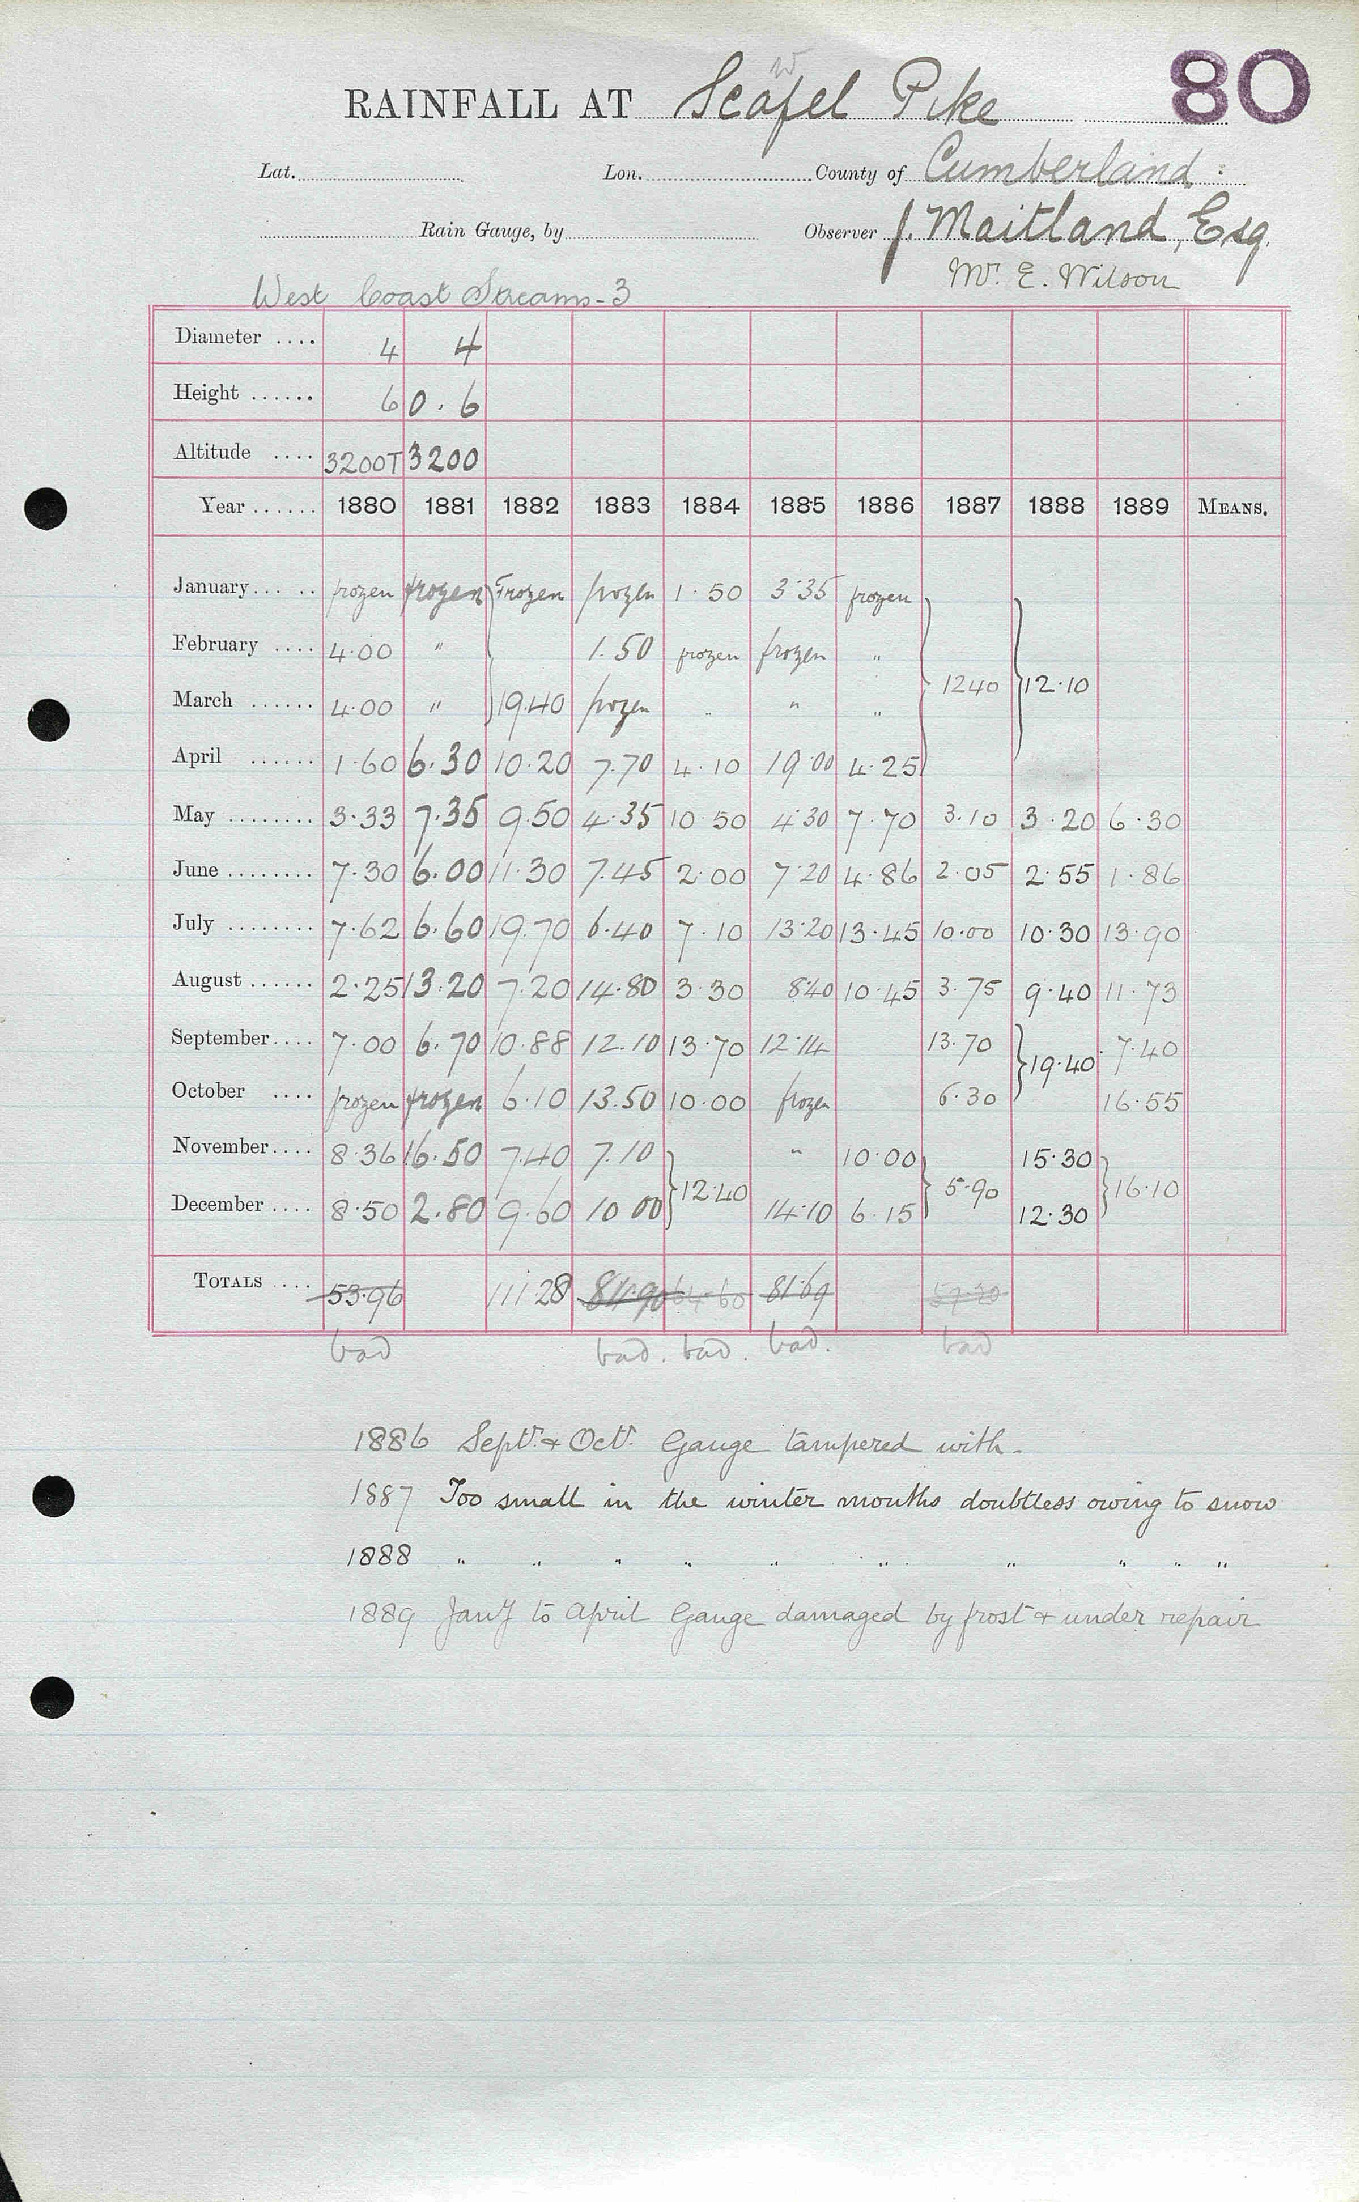 80
w
RAINFALL AT Scafel Pike
Lat. Lon. County of Cumberland :
Rain Gauge, by Observer J. Maitland, Esq.
Mr. E. Wilson
West Coast Streams - 3
Diameter .... 4 4
Height ...... 6 0.6
Altitude .... 3200T 3200
Year ...... 1880 1881 1882 1883 1884 1885 1886 1887 1888 1889 MEANS.
January... .. frozen frozen Frozen frozen 1.50 3.35 frozen
February .... 4.00 " 1.50 frozen frozen "
March ...... 4.00 " 19.40 frozen " " " 12.40 12.10
April ...... 1.60 6.30 10.20 7.70 4.10 19.00 4.25
May ........ 3.33 7.35 9.50 4.35 10.50 4.30 7.70 3.10 3.20 6.30
June ........ 7.30 6.00 11.30 7.45 2.00 7.20 4.86 2.05 2.55 1.86
July ........ 7.62 6.60 19.70 6.40 7.10 13.20 13.45 10.00 10.30 13.90
August ...... 2.25 13.20 7.20 14.80 3.30 8.40 10.45 3.75 9.40 11.73
September.... 7.00 6.70 10.88 12.10 13.70 12.14 13.70 19.40 7.40
October .... frozen frozen 6.10 13.50 10.00 frozen 6.30 16.55
November.... 8.36 16.50 7.40 7.10 " 10.00 15.30
December .... 8.50 2.80 9.60 10.00 12.40 14.10 6.15 5.90 12.30 16.10
TOTALS .... 53.96 111.28 84.90 64.60 81.69 57.20
bad bad. bad. bad. bad
1886 Septr. & Octr. Gauge tampered with.
1887 Too small in the winter months doubtless owing to snow
1888 " " " " " " " " " "
1889 Jany to April Gauge damaged by frost & under repair